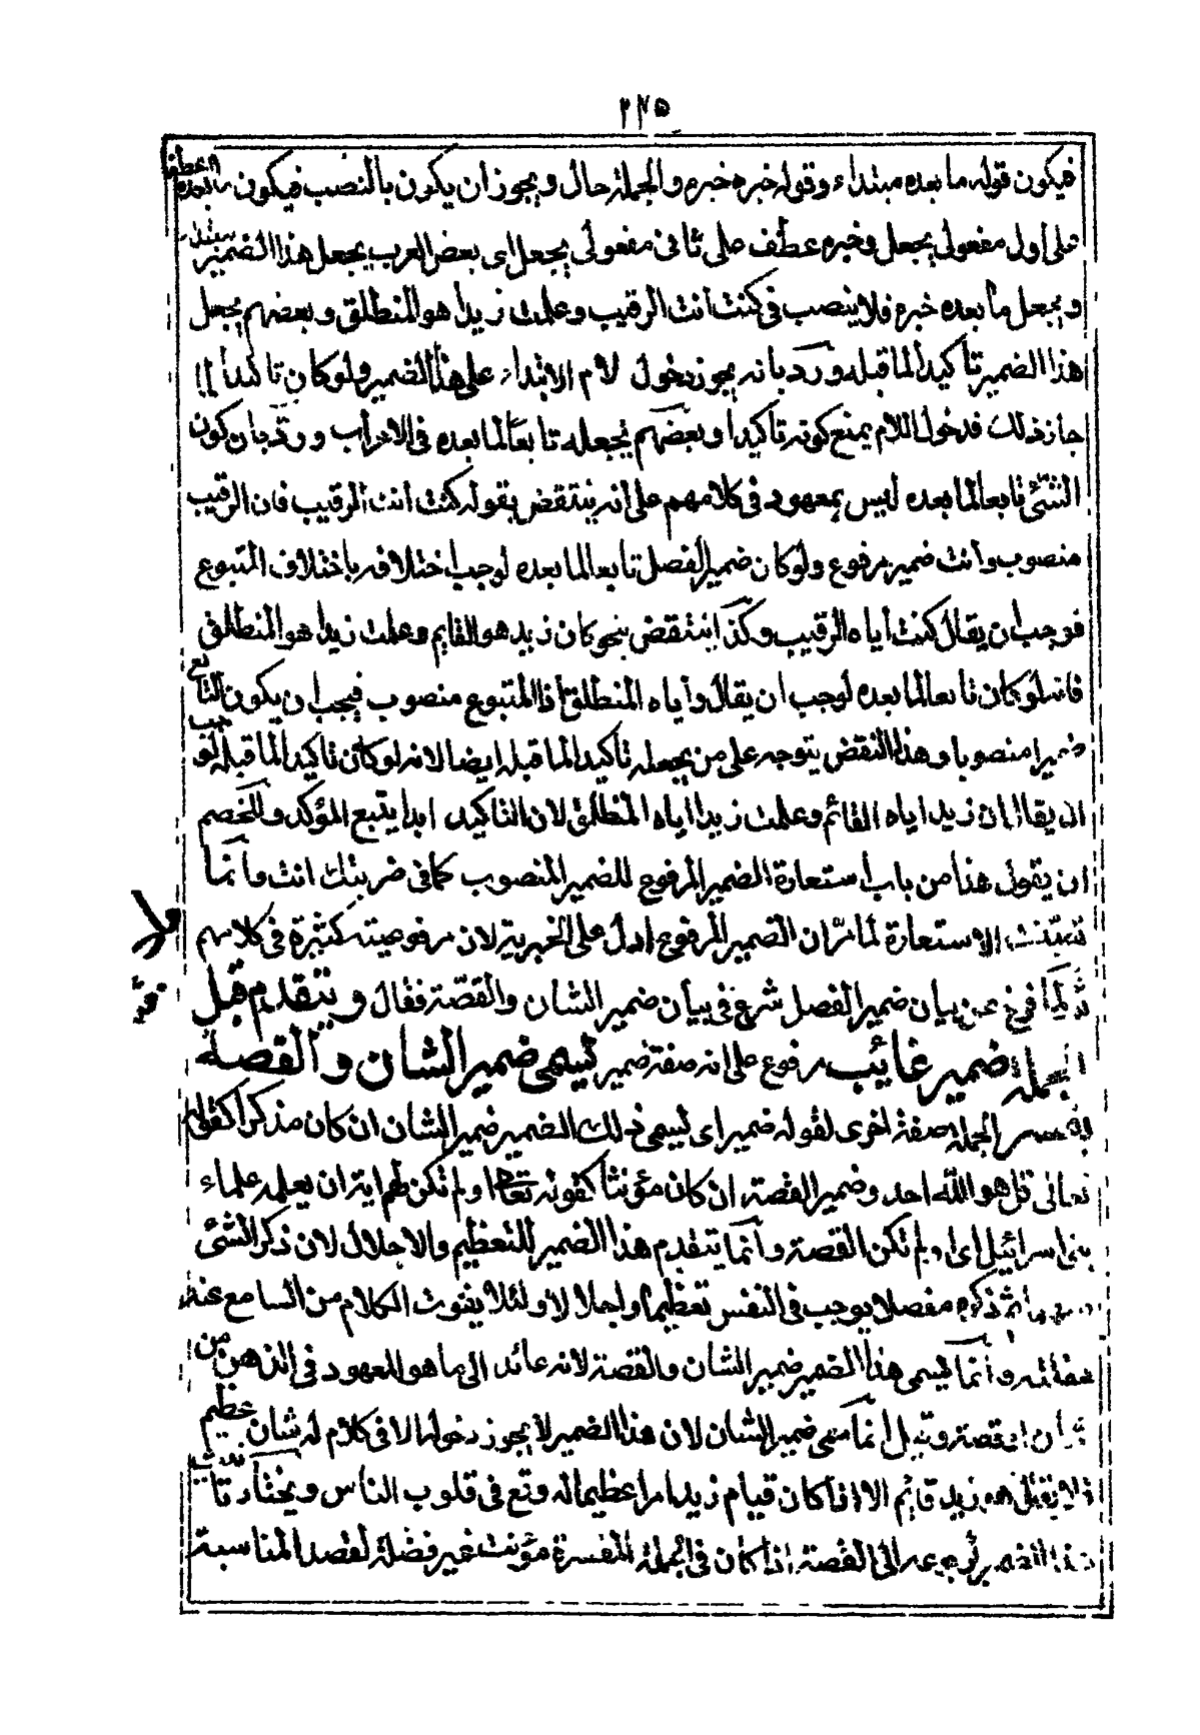 ٢٢٥
فيكون قوله ما بعده مبتداء وقوله خبره خبره والجملة حال ويجوز ان يكون بالنصب فيكون ما بعده العطف
على اول مفعولى يجعل وخبره عطف على ثانى مفعولى يجعل اى بعض العرب يجعل هذا الضمير مبتداء
ويجعل ما بعده خبره فلا ينصب فى كنت انت الرقيب وعلمت زيدا هو المنطلق وبعضهم يجعل
هذا الضمير تاكيدا لما قبله ورد بانه يجوز دخول لام الابتداء على هذا الضمير ولو كان تاكيدا لما
جاز ذلك فدخول اللام يمنع كونه تاكيدا وبعضهم يجعله تابعا لما بعده فى الاعراب ورد بان كون
الشئ تابعا لما بعده ليس بمعهود فى كلامهم على انه ينتقض بقوله كنت انت الرقيب فان الرقيب
منصوب وانت ضمير مرفوع ولو كان ضمير الفصل تابعا لما بعده لوجب اختلافه باختلاف المتبوع
فوجب ان يقال كنت اياه الرقيب وكذا ينتقض بنحو كان زيد هو القايم وعلمت زيدا هو المنطلق
فانه لو كان تابعا لما بعده لوجب ان يقال واياه المنطلق اذ المتبوع منصوب فيجب ان يكون التابع
ضميرا منصوبا وهذا النقض يتوجه على من يجعله تاكيدا لما قبله ايضا لانه لو كان تاكيدا لما قبله لوجب
ان يقال ان زيدا اياه القائم وعلمت زيدا اياه المنطلق لان التاكيد ابدا يتبع المؤكد وللخصم
ان يقول هذا من باب استعارة الضمير المرفوع للضمير المنصوب كما فى ضربتك انت وانما
الاستعارة لما مر ان الضمير المرفوع ادل على الخبرية لان مرفوعيته كثيرة فى كلامهم
ثم لما فرغ عن بيان ضمير الفصل شرع فى بيان ضمير الشان والقصة فقال ويتقدم قبل
الجملة ضمير غائب مرفوع على انه صفة ضمير يسمى ضمير الشان والقصة
يفسر الجملة صفة اخرى لقوله ضمير اى يسمى ذلك الضمير ضمير الشان ان كان مذكرا كقوله
تعالى قل هو الله احد وضمير القصة ان كان مؤنثا كقوله تعالى او لم تكن لهم اية ان يعلمه علماء
بنى اسرائيل اى او لم تكن القصة وانما يتقدم هذا الضمير للتعظيم والاجلال لان ذكر الشئ
ثم ذكره مفصلا يوجب فى النفس تعظيما واجلالا ولئلا يفوت الكلام من السامع عند
غفلته وانما يسمى هذا الضمير ضمير الشان والقصة لانه عائد الى ما هو المعهود فى الذهن من
شان او قصة وقيل انما سمى ضمير الشان لان هذا الضمير لا يجوز دخوله الا فى كلام له شان عظيم
فلا يقال هو زيد قايم الا اذا كان قيام زيد امرا عظيما له وقع فى قلوب الناس ويختار تانيث
هذا الضمير لرجوعه الى القصة اذا كان فى الجملة المفسرة مؤنث غير فضلة لقصد المناسبة